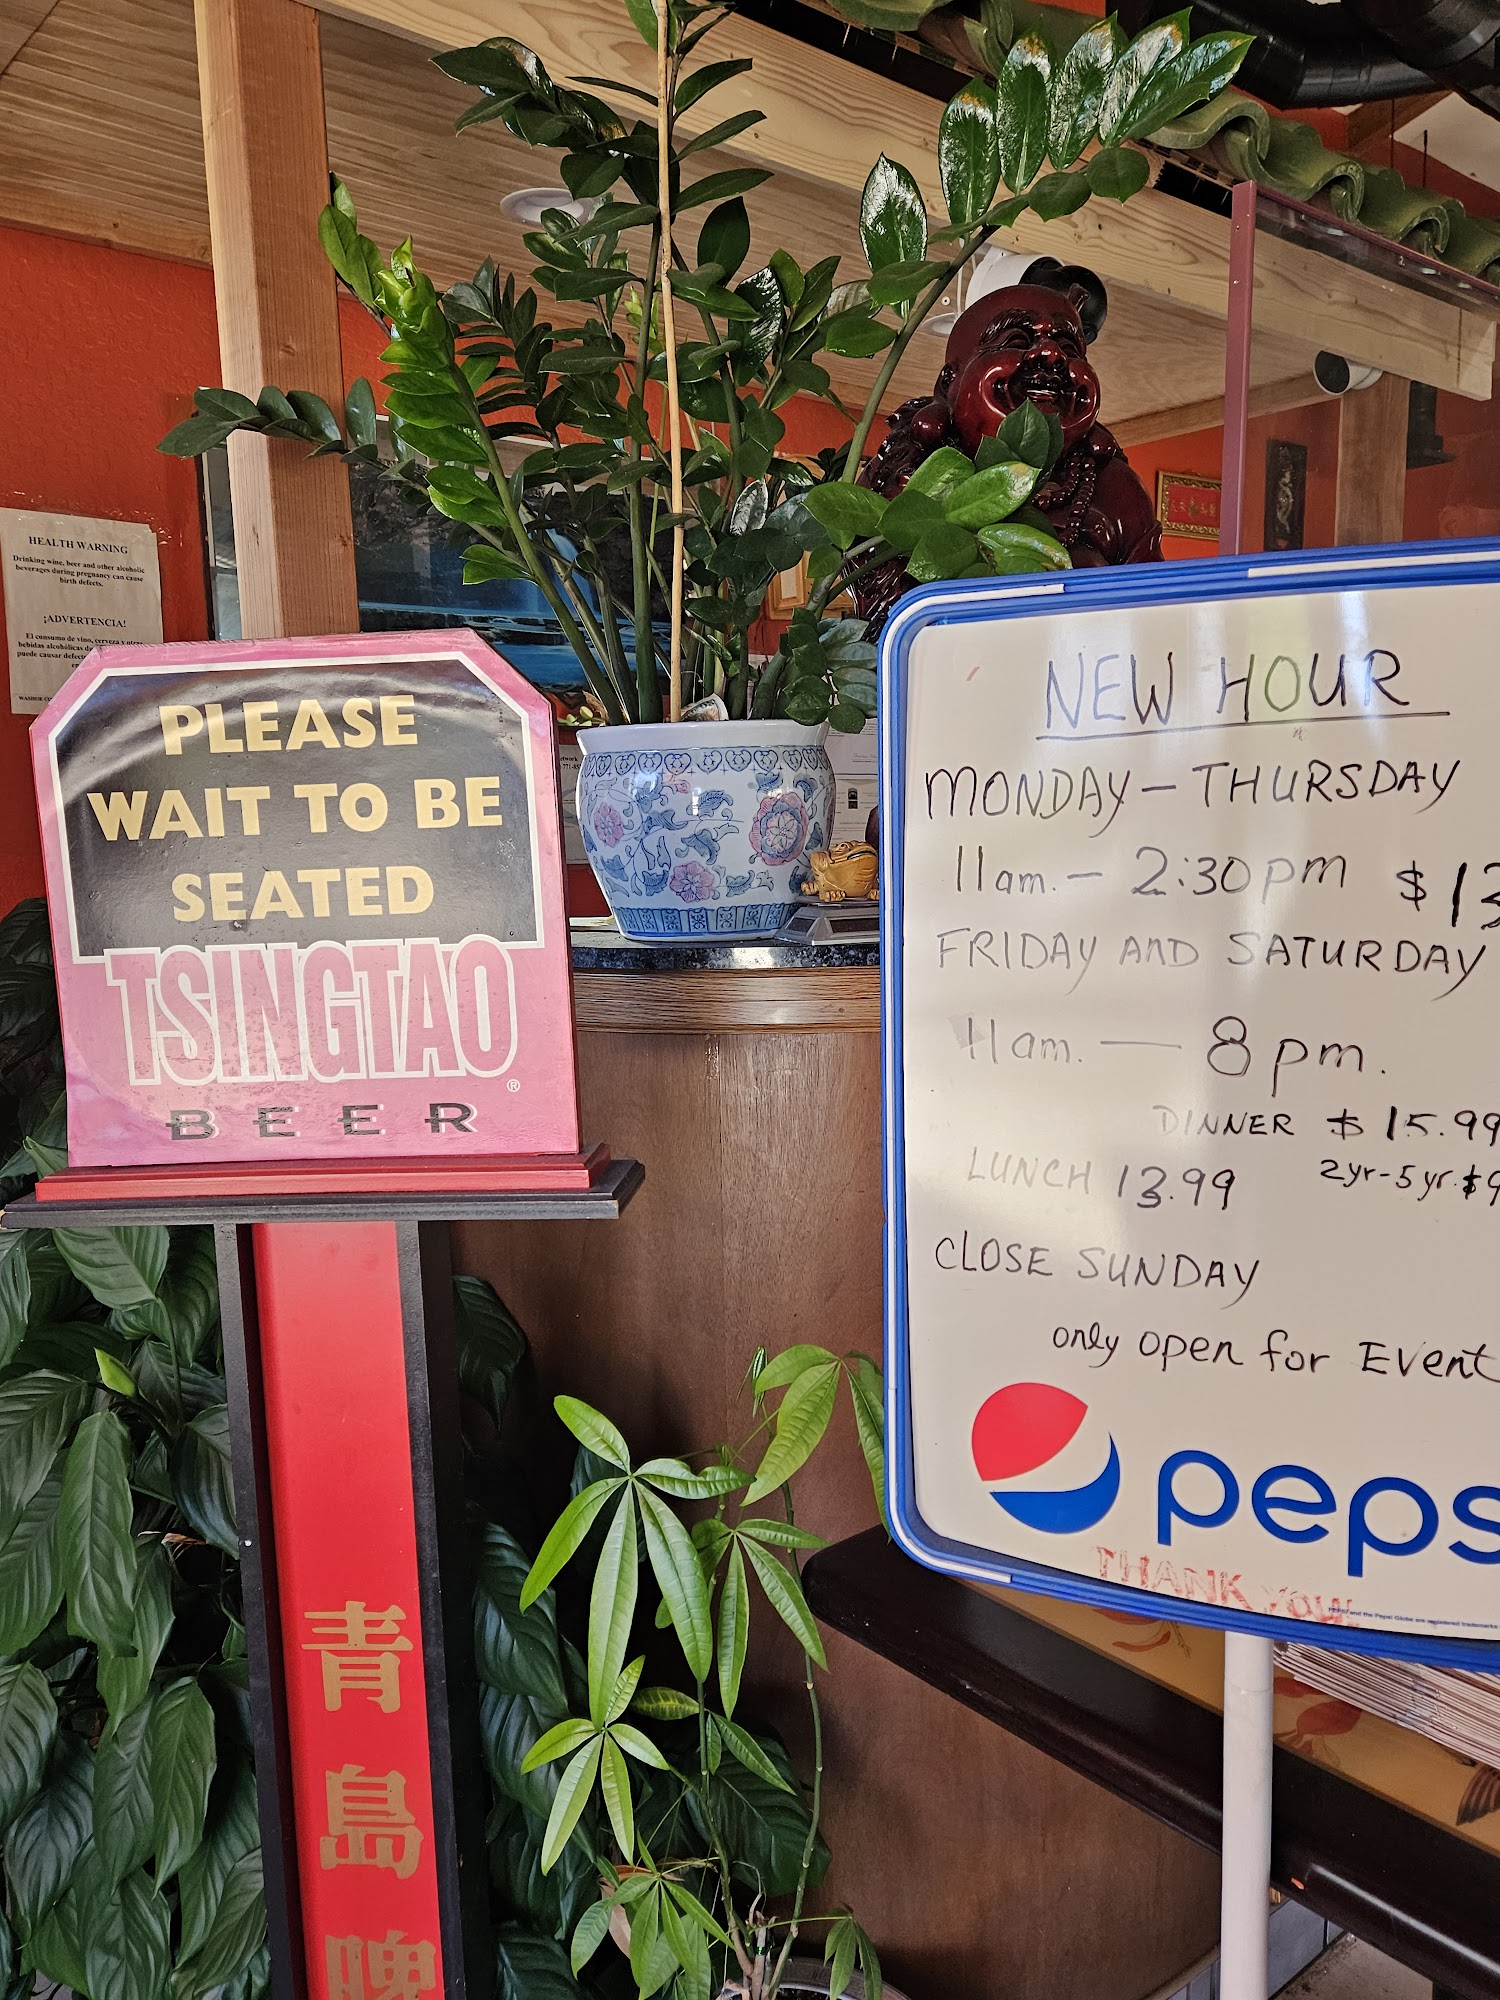 HEALTH WARNING
Drinking wine, beer and other alcoholic
beverages during pregnancy can cause
birth defects.
¡ADVERTENCIA!
El consumo de vino, cerveza y otras
bebidas alcohólicas
puede causar
PLEASE
WAIT TO BE
SEATED
TSINGTAO
®
BEER
青
島
啤
NEW HOUR
MONDAY - THURSDAY
11am. - 2:30pm $13
FRIDAY AND SATURDAY
11am. — 8pm.
DINNER $15.99
LUNCH 13.99 2yr-5yr. $9
CLOSE SUNDAY
only open for Event
peps
THANK YOU!